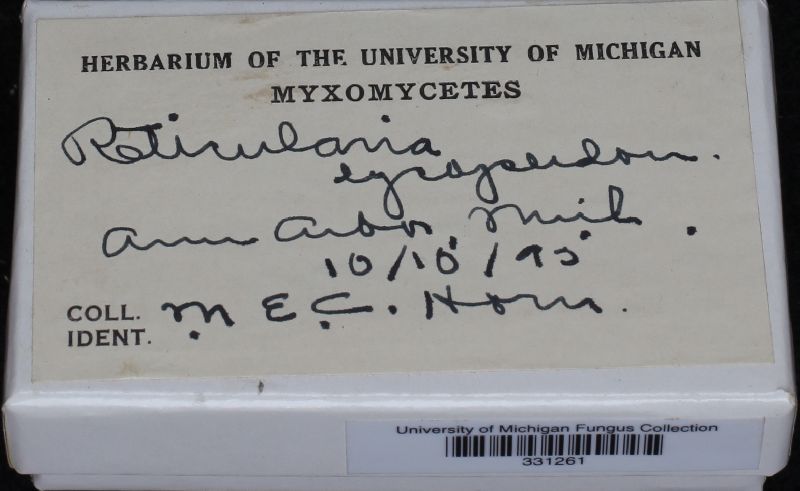 HERBARIUM OF THE UNIVERSITY OF MICHIGAN
MYXOMYCETES
Reticularia
lycoperdon.
Ann Arbor, Mich.
10/10/95
COLL. M. E. C. Horn.
IDENT.
University of Michigan Fungus Collection
331261